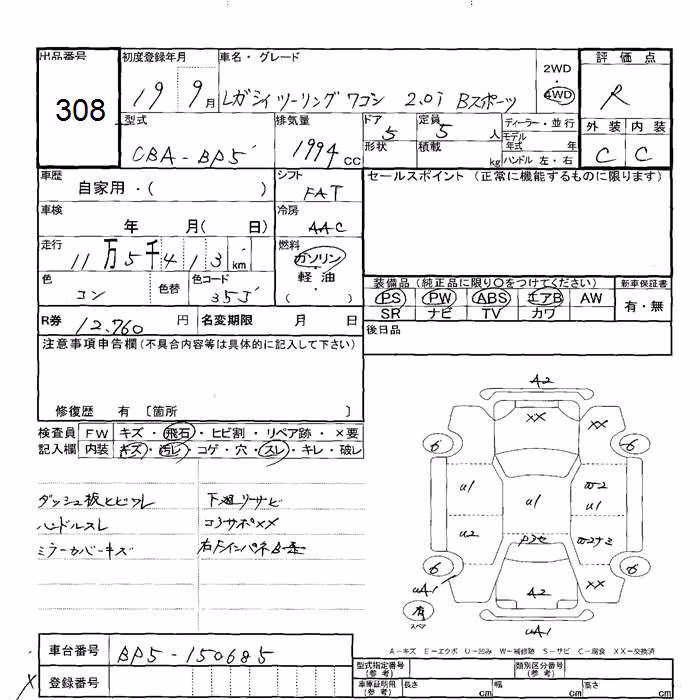 出品番号
308
初度登録年月
19 9月
車名・グレード
レガシィツーリングワゴン 2.0i Bスポーツ
2WD
4WD
評価点
R
外装 内装
C C
型式
CBA-BP5
排気量
1994 cc
ドア
5
形状
定員
5 人
積載
kg
ディーラー・並行
モデル
年式 年
ハンドル 左・右
車歴
自家用・( )
シフト
FAT
車検
年 月( 日)
冷房
AAC
走行
11万5千413 km
燃料
ガソリン
軽・油
( ・ )
色
コン
色替
色コード
35J
R券 12,760 円
名変期限 月 日
セールスポイント (正常に機能するものに限ります)
装備品 (純正品に限り〇をつけてください)
PS PW ABS エアB AW
SR ナビ TV カワ
新車保証書
有・無
後日品
注意事項申告欄 (不具合内容等は具体的に記入して下さい)
修復歴 有 〔箇所 〕
検査員 FW キズ・飛石・ヒビ割・リペア跡・×要
記入欄 内装 キズ・汚レ・コゲ・穴・スレ・キレ・破レ
ダッシュ板ヒビワレ
ハンドルスレ
ミラーカバーキズ
下廻リサビ
コアサポXX
右Fインパネ
A2
XX
XX
6 6
U1
U1
W2
U1
U2
W2ナミ
6 6
A2
XX
UA1
有
スペア
UA1
A-キズ E-エクボ U-凹み W-補修跡 S-サビ C-腐食 XX-交換済
車台番号 BP5-150685
登録番号
型式指定番号
(参考)
類別区分番号
(参考)
車庫証明用
(参考)
長さ cm
幅 cm
高さ cm